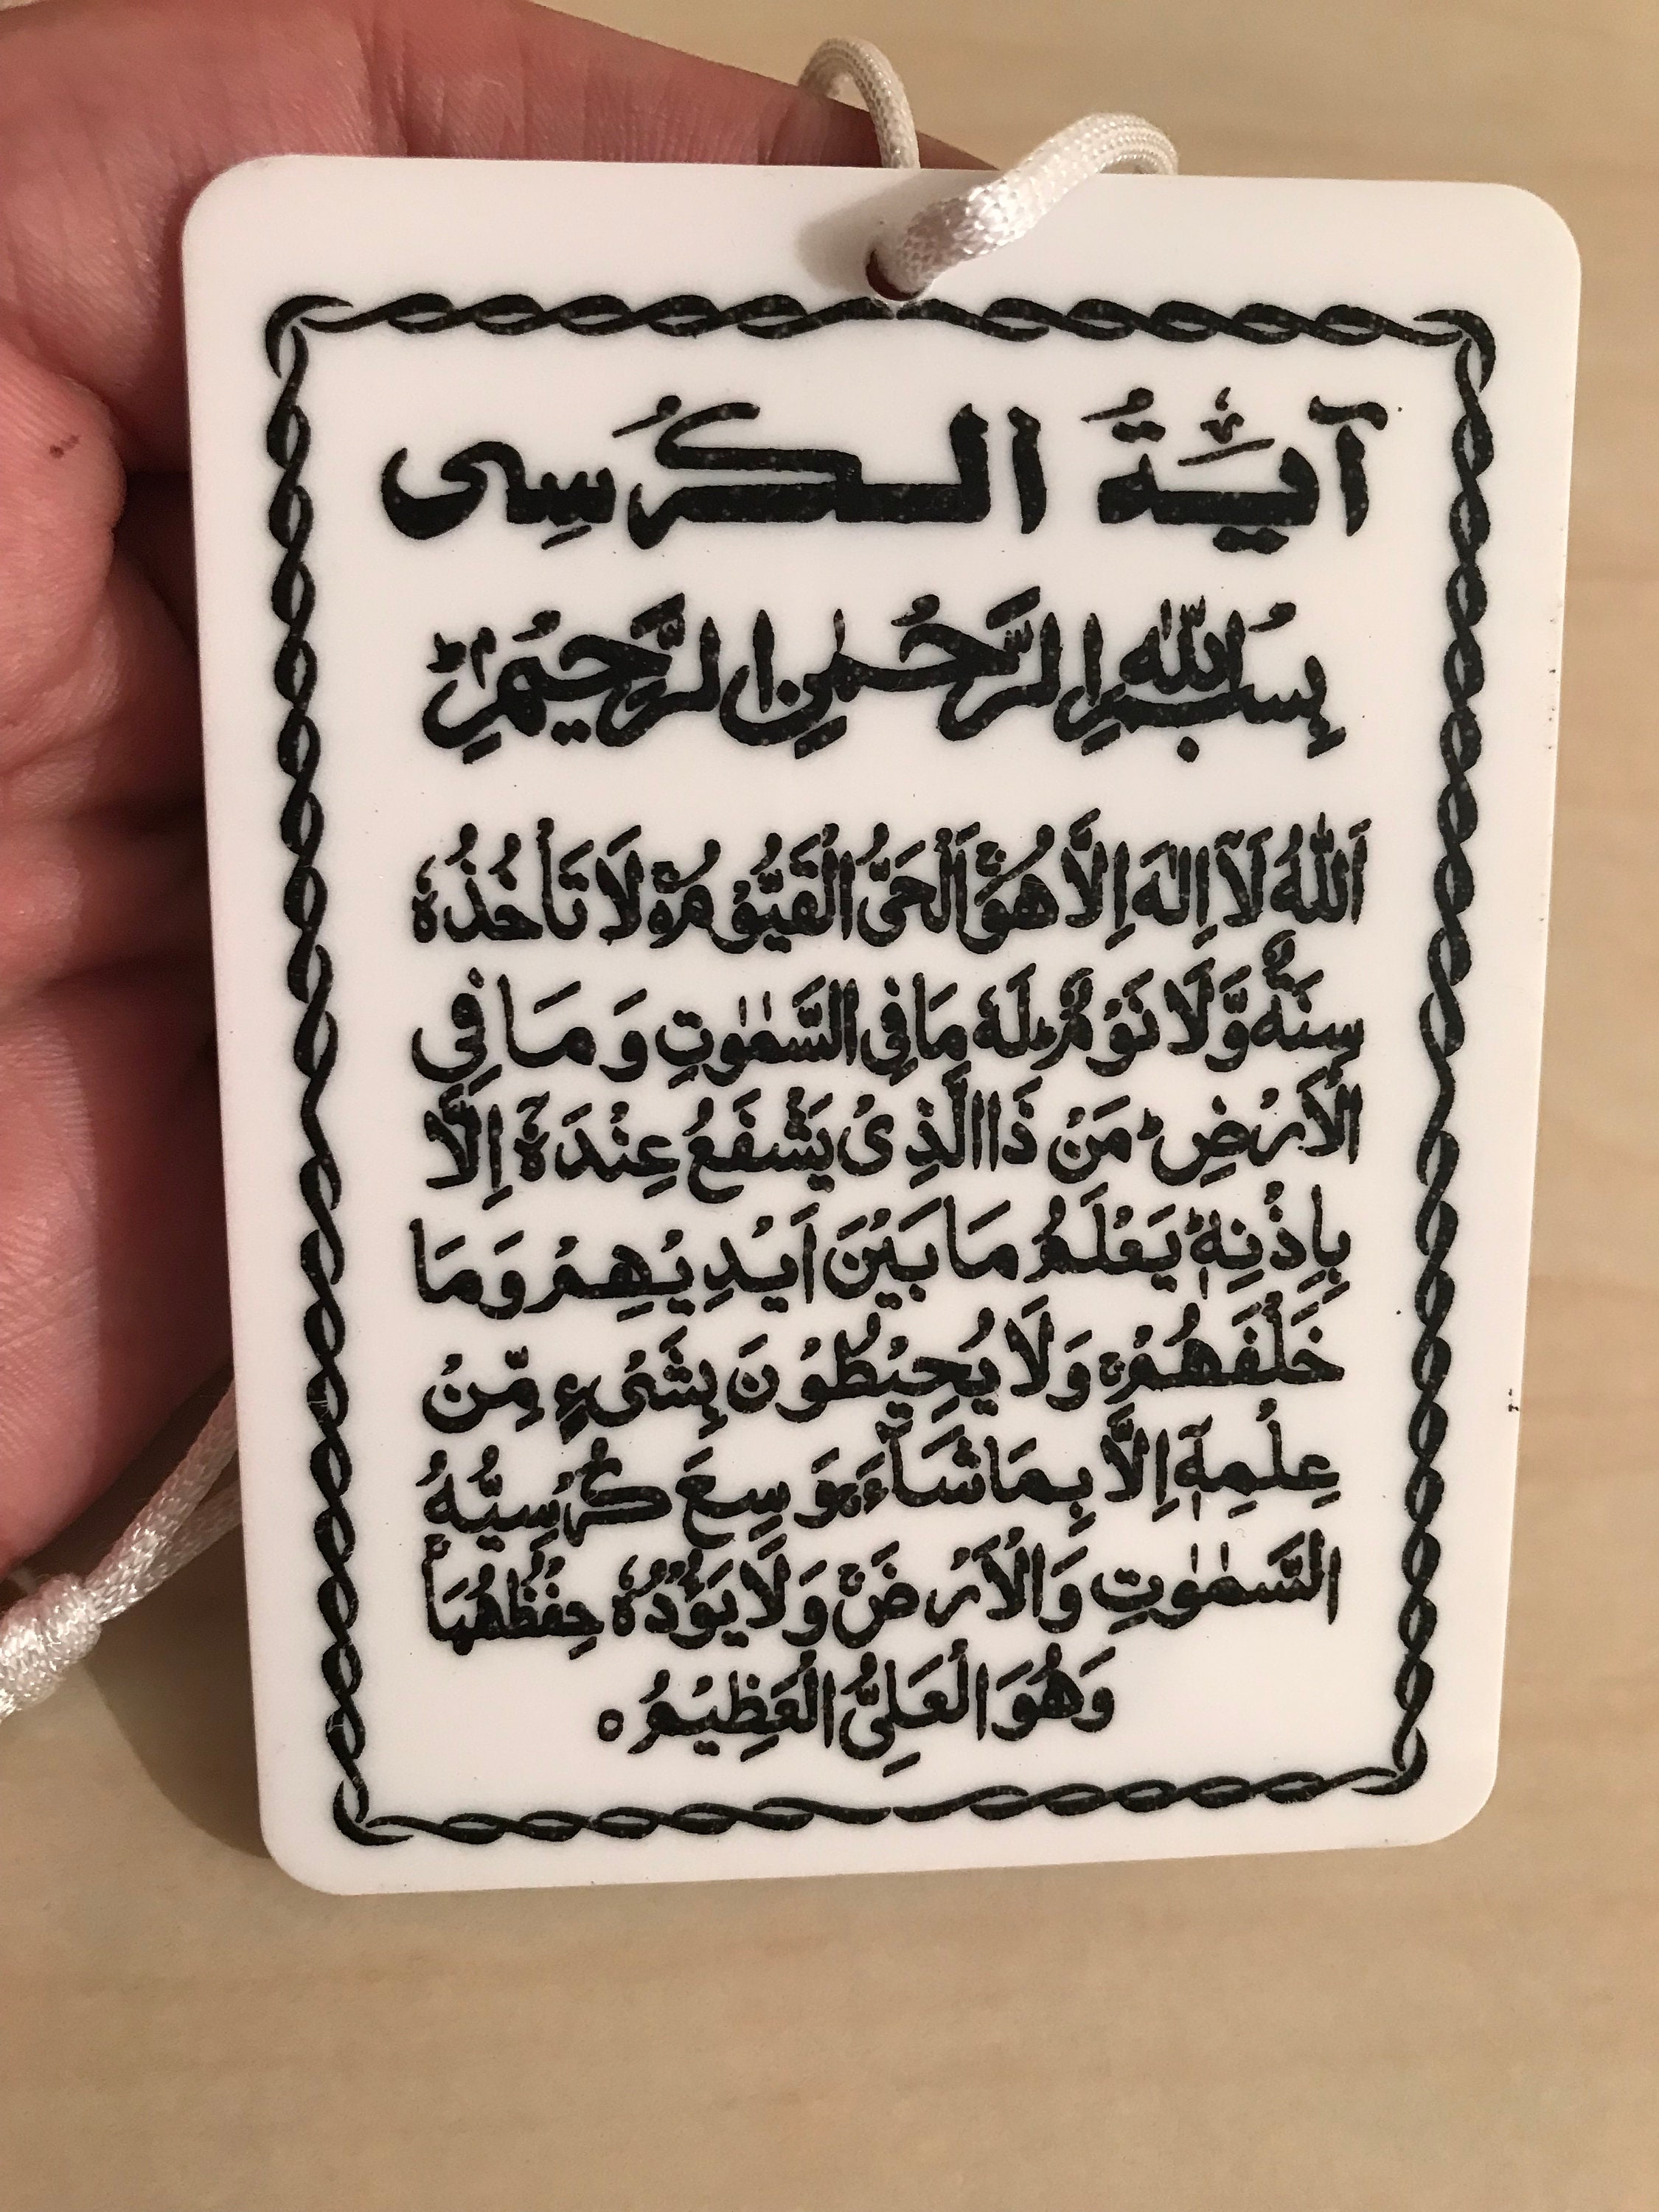 آيَةُ الكُرسِى
بِسْمِ اللهِ الرَّحْمٰنِ الرَّحِيْمِ ؕ
اَللهُ لَاۤ اِلٰهَ اِلَّا هُوَ ۚ اَلْحَىُّ الْقَيُّوْمُ ۚ لَا تَاْخُذُهٗ
سِنَةٌ وَّلَا نَوْمٌ ؕ لَهٗ مَا فِى السَّمٰوٰتِ وَمَا فِى
الْاَرْضِ ؕ مَنْ ذَا الَّذِىْ يَشْفَعُ عِنْدَهٗۤ اِلَّا
بِاِذْنِهٖ ؕ يَعْلَمُ مَا بَيْنَ اَيْدِيْهِمْ وَمَا
خَلْفَهُمْ ۚ وَلَا يُحِيْطُوْنَ بِشَىْءٍ مِّنْ
عِلْمِهٖۤ اِلَّا بِمَا شَآءَ ۚ وَسِعَ كُرْسِيُّهُ
السَّمٰوٰتِ وَالْاَرْضَ ۚ وَلَا يَؤُدُهٗ حِفْظُهُمَا ۚ
وَهُوَ الْعَلِىُّ الْعَظِيْمُ ه